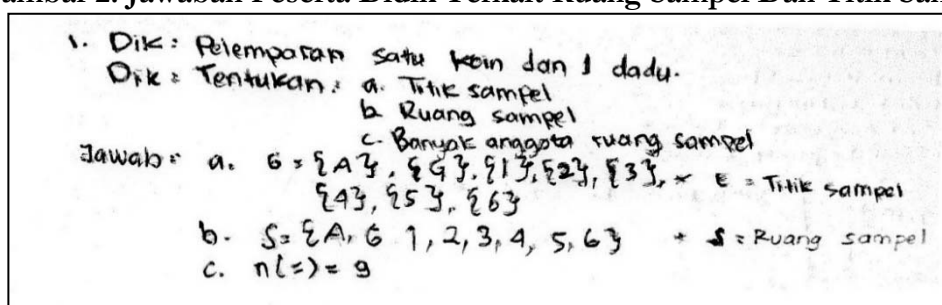 ambar 2. Jawaban Peserta Didik Terkait Ruang Sampel Dan Titik Sam
1. Dik : Pelemparan satu koin dan 1 dadu.
Dik : Tentukan : a. Titik sampel
b. Ruang sampel
c. Banyak anggota ruang sampel
Jawab : a. G = {A}, {G}, {1}, {2}, {3}, * E = Titik sampel
{4}, {5}, {6}
b. S = {A, G 1, 2, 3, 4, 5, 6} * S = Ruang sampel
c. n(s) = 9